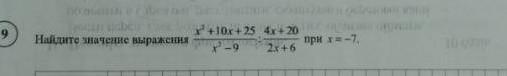 9
Найдите значение выражения (x² + 10x + 25)/(x² − 9) : (4x + 20)/(2x + 6) при x = −7.